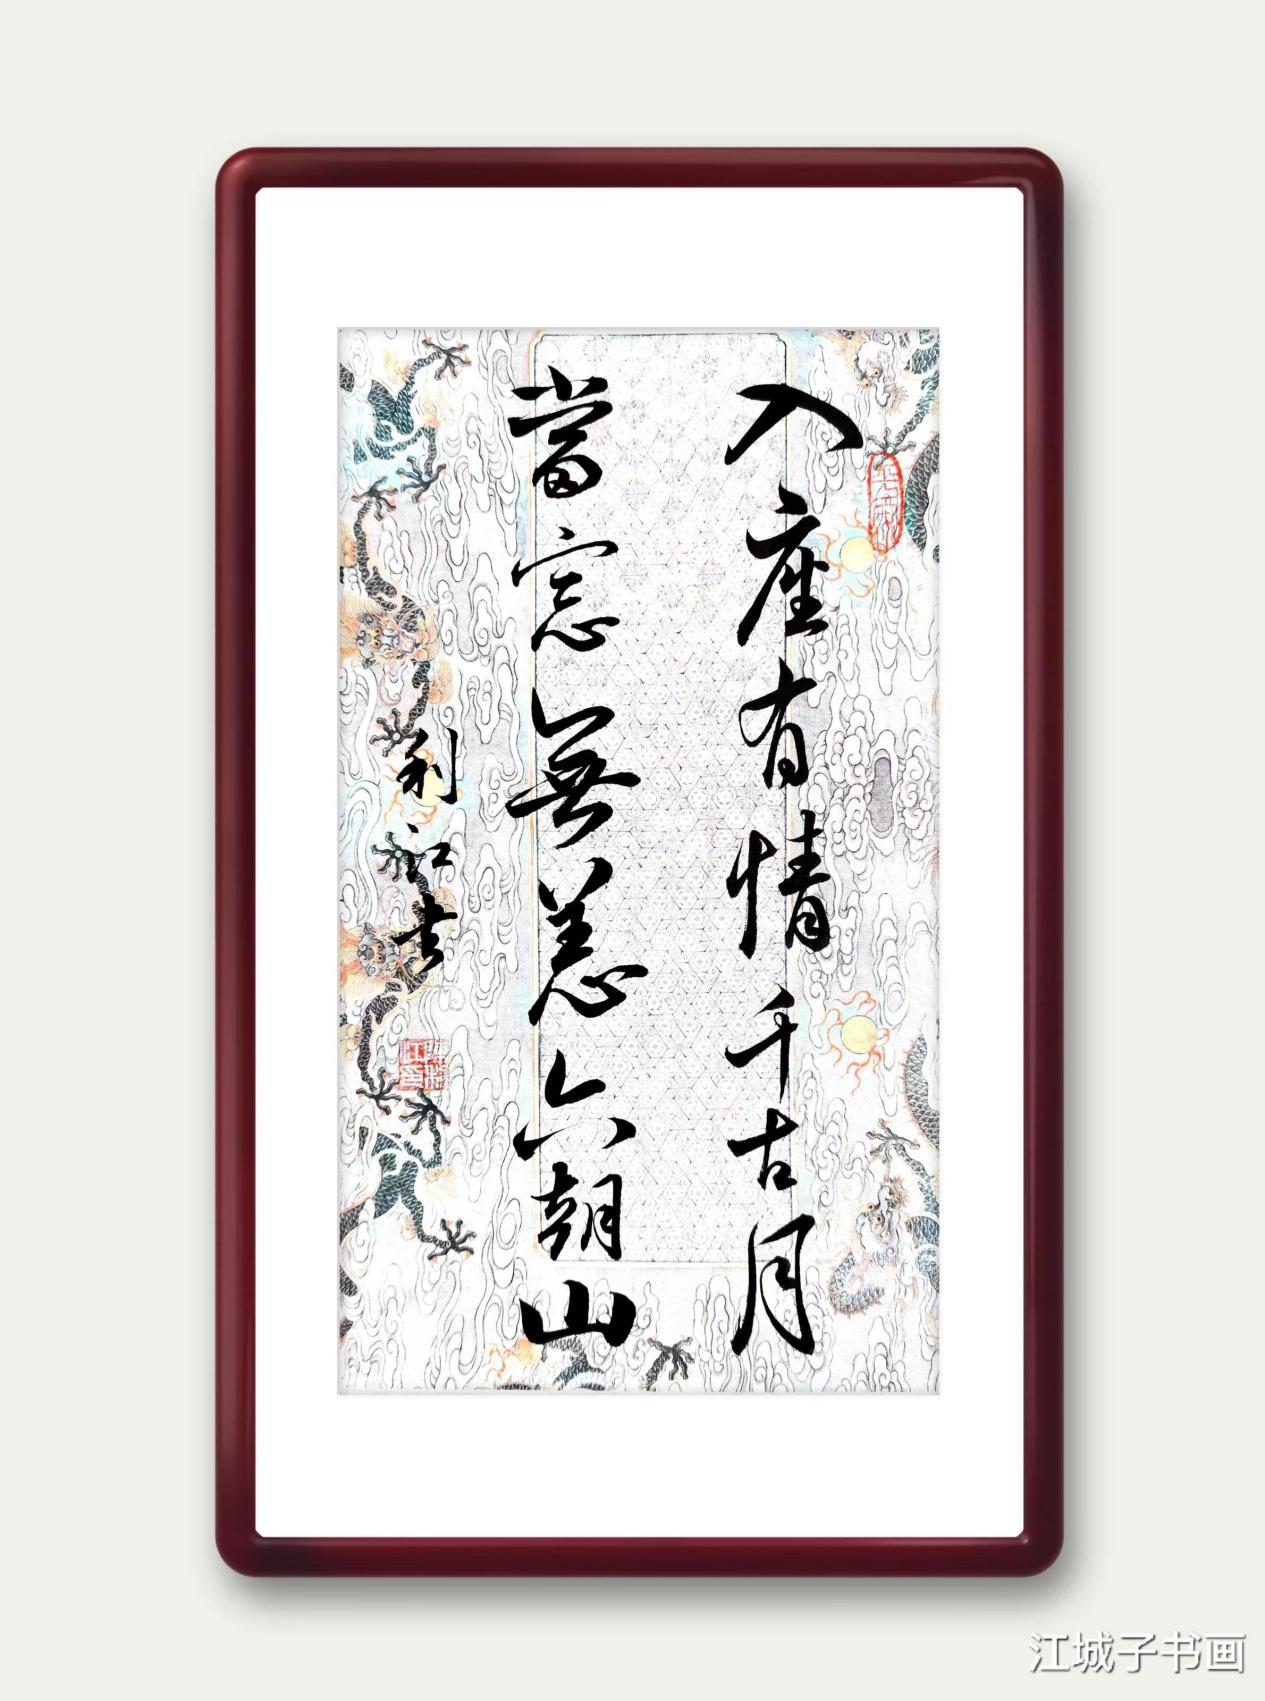 入座有情千古月
當窓無恙六朝山
利江书
江城子书画